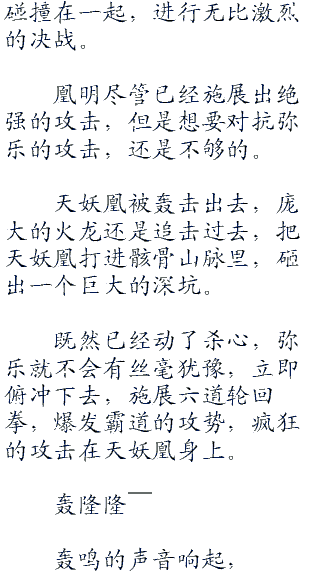 碰撞在一起，进行无比激烈
的决战。
凰明尽管已经施展出绝
强的攻击，但是想要对抗弥
乐的攻击，还是不够的。
天妖凰被轰击出去，庞
大的火龙还是追击过去，把
天妖凰打进骸骨山脉里，砸
出一个巨大的深坑。
既然已经动了杀心，弥
乐就不会有丝毫犹豫，立即
俯冲下去，施展六道轮回
拳，爆发霸道的攻势，疯狂
的攻击在天妖凰身上。
轰隆隆——
轰鸣的声音响起，